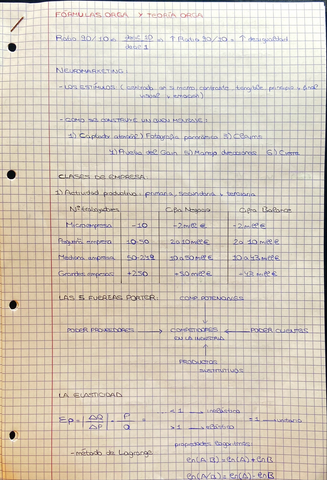 FÓRMULAS ORGA Y TEORÍA ORGA
Ratio 90/10 = decil 10 ⇒ ↑ Ratio 90/10 = ↑ desigualdad
decil 1
NEUROMARKETING:
- LOS ESTÍMULOS ( centrado en sí mismo, contraste, tangible, principio y final
visual y emoción)
- CÓMO SE CONSTRUYE UN BUEN MENSAJE:
1) Captador atención 2) Fotografía panorámica 3) Claims
4) Prueba del Gain 5) Manejo objeciones 6) Cierre
CLASES DE EMPRESA:
1) Actividad productiva: primaria, secundaria y terciaria
Nº trabajadores Cifra Negocio Cifra Balance
Microempresa -10 -2 mill € -2 mill €
Pequeña empresa 10-50 2 a 10 mill € 2 a 10 mill €
Mediana empresa 50-249 10 a 50 mill € 10 a 43 mill €
Grandes empresas +250 +50 mill € +43 mill €
LAS 5 FUERZAS PORTER: COMP. POTENCIALES
PODER PROVEEDORES → COMPETIDORES ← PODER CLIENTES
EN LA INDUSTRIA
PRODUCTOS
SUSTITUTIVOS
LA ELASTICIDAD
Ep = |ΔQ/ΔP| · P/Q = < 1 → inelástica
> 1 → elástica
= 1 → unitaria
- método de Lagrange
propiedades logaritmos:
ln(A·B) = ln(A) + ln B
ln(A/B) = ln(A) - ln B